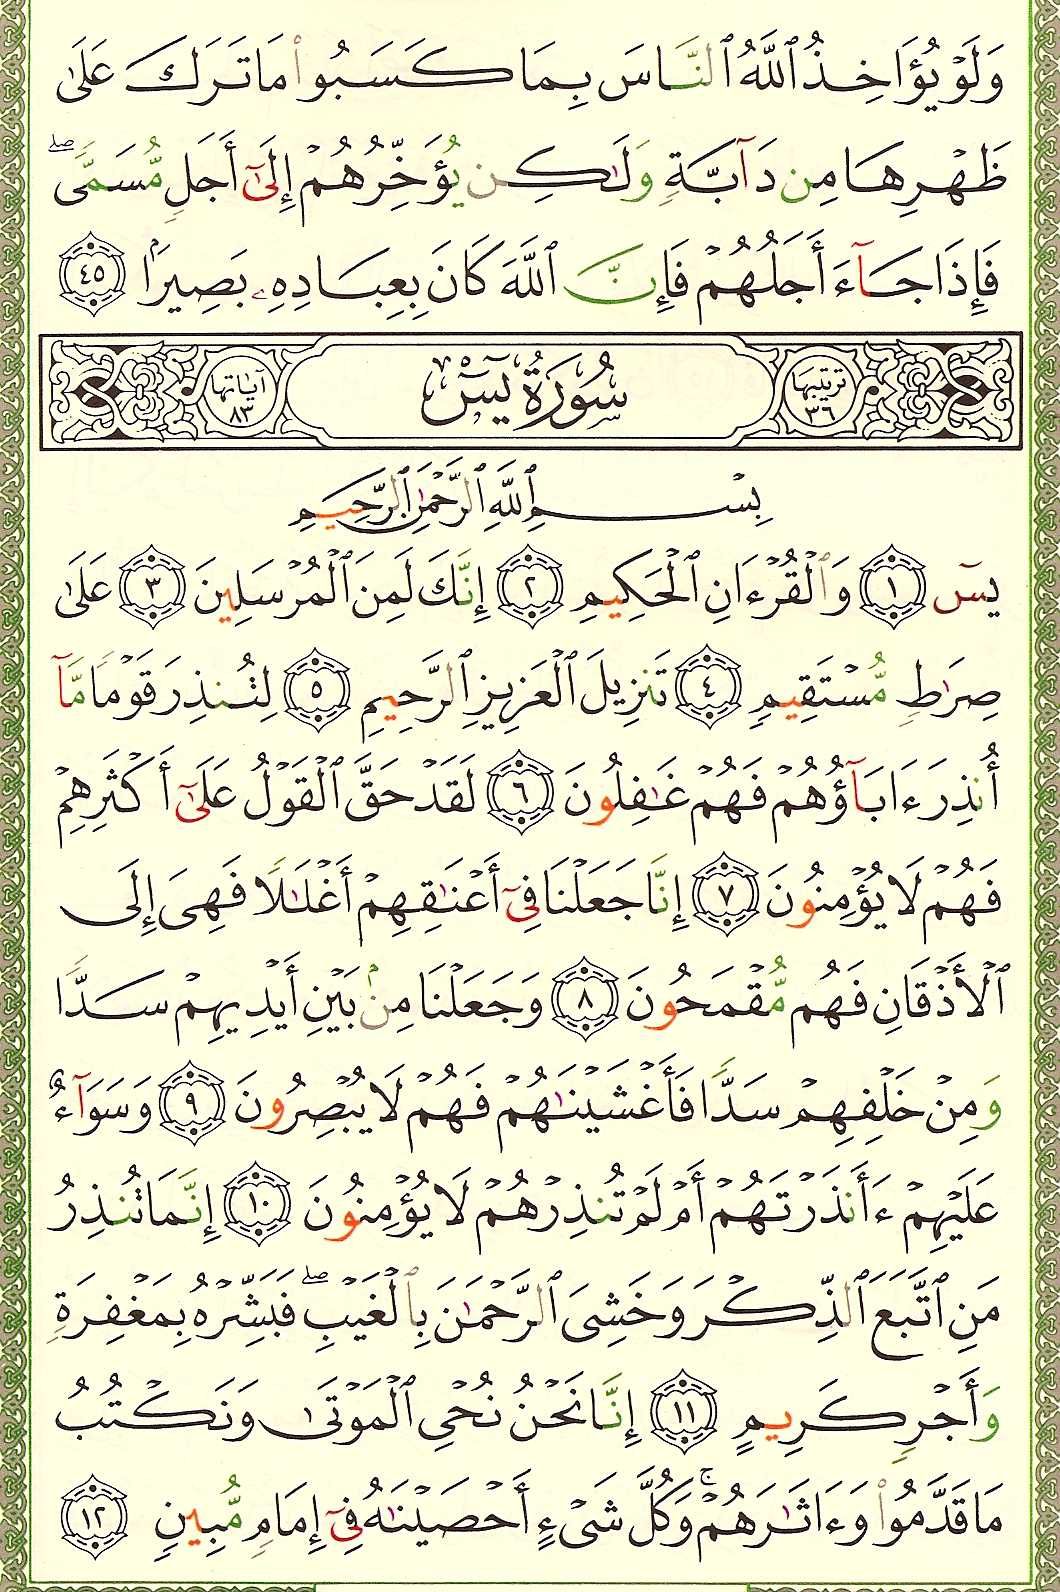 وَلَوْ يُؤَاخِذُ ٱللَّهُ ٱلنَّاسَ بِمَا كَسَبُوا۟ مَا تَرَكَ عَلَىٰ
ظَهْرِهَا مِن دَآبَّةٍ وَلَٰكِن يُؤَخِّرُهُمْ إِلَىٰٓ أَجَلٍ مُّسَمًّى ۖ
فَإِذَا جَآءَ أَجَلُهُمْ فَإِنَّ ٱللَّهَ كَانَ بِعِبَادِهِۦ بَصِيرًۢا ٤٥
ترتيبها ٣٦ سُورَةُ يسٓ آياتها ٨٣
بِسْمِ ٱللَّهِ ٱلرَّحْمَٰنِ ٱلرَّحِيمِ
يسٓ ١ وَٱلْقُرْءَانِ ٱلْحَكِيمِ ٢ إِنَّكَ لَمِنَ ٱلْمُرْسَلِينَ ٣ عَلَىٰ
صِرَٰطٍ مُّسْتَقِيمٍ ٤ تَنزِيلَ ٱلْعَزِيزِ ٱلرَّحِيمِ ٥ لِتُنذِرَ قَوْمًا مَّآ
أُنذِرَ ءَابَآؤُهُمْ فَهُمْ غَٰفِلُونَ ٦ لَقَدْ حَقَّ ٱلْقَوْلُ عَلَىٰٓ أَكْثَرِهِمْ
فَهُمْ لَا يُؤْمِنُونَ ٧ إِنَّا جَعَلْنَا فِىٓ أَعْنَٰقِهِمْ أَغْلَٰلًا فَهِىَ إِلَى
ٱلْأَذْقَانِ فَهُم مُّقْمَحُونَ ٨ وَجَعَلْنَا مِنۢ بَيْنِ أَيْدِيهِمْ سَدًّا
وَمِنْ خَلْفِهِمْ سَدًّا فَأَغْشَيْنَٰهُمْ فَهُمْ لَا يُبْصِرُونَ ٩ وَسَوَآءٌ
عَلَيْهِمْ ءَأَنذَرْتَهُمْ أَمْ لَمْ تُنذِرْهُمْ لَا يُؤْمِنُونَ ١٠ إِنَّمَا تُنذِرُ
مَنِ ٱتَّبَعَ ٱلذِّكْرَ وَخَشِىَ ٱلرَّحْمَٰنَ بِٱلْغَيْبِ ۖ فَبَشِّرْهُ بِمَغْفِرَةٍ
وَأَجْرٍ كَرِيمٍ ١١ إِنَّا نَحْنُ نُحْىِ ٱلْمَوْتَىٰ وَنَكْتُبُ
مَا قَدَّمُوا۟ وَءَاثَٰرَهُمْ ۚ وَكُلَّ شَىْءٍ أَحْصَيْنَٰهُ فِىٓ إِمَامٍ مُّبِينٍ ١٢